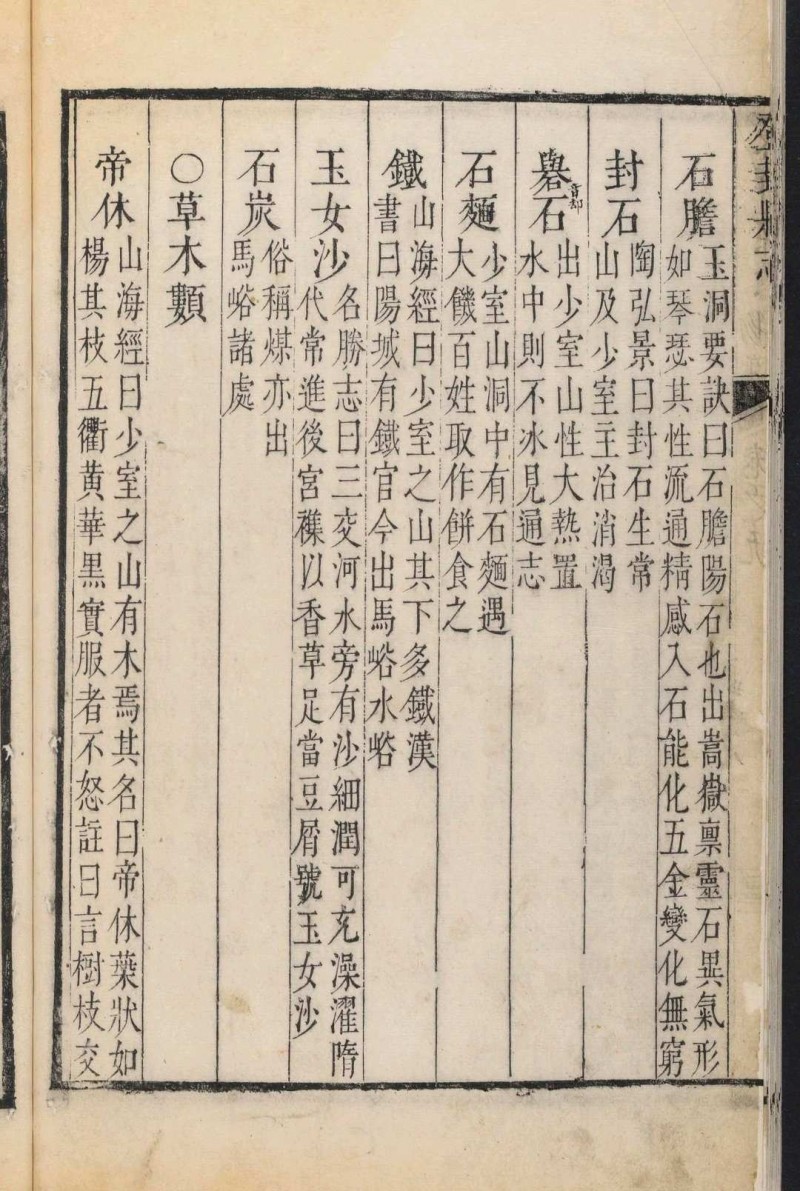 登封縣志
石膽玉洞要訣曰石膽陽石也出嵩嶽禀靈石異氣形
如琴瑟其性流通精感入石能化五金變化無窮
封石陶弘景曰封石生常
山及少室主治消渴
礜石音却出少室山性大熱置
水中則不冰見通志
石麵少室山洞中有石麵遇
大饑百姓取作餅食之
鐵山海經曰少室之山其下多鐵漢
書曰陽城有鐵官今出馬峪水峪
玉女沙名勝志曰三交河水旁有沙細潤可充澡濯隋
代常進後宮襍以香草足當豆屑號玉女沙
石炭俗稱煤亦出
馬峪諸處
〇草木類
帝休山海經曰少室之山有木焉其名曰帝休葉狀如
楊其枝五衢黃華黒實服者不怒註曰言樹枝交